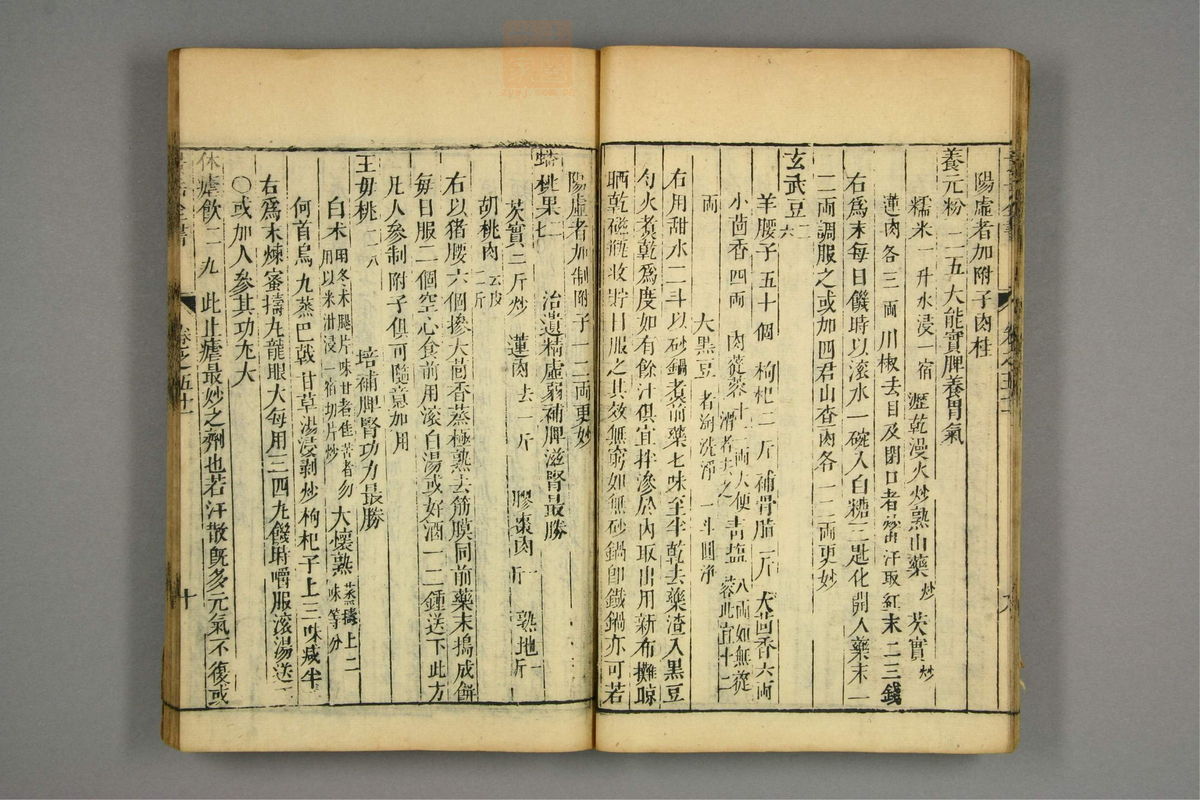 陽虛者加附子肉桂
養元粉 二五 大能實脾養胃氣
糯米 一升水浸一宿 瀝乾漫火炒熟 山藥 炒 芡實 炒
蓮肉 各三兩 川椒 去目及閉口者炒出汗取紅末二三錢
右爲末每日饑時以滾水一碗入白糖三匙化開入藥末一
二兩調服之或加四君山查肉各一二兩更妙
玄武豆 二六
羊腰子 五十個 枸杞 二斤 補骨脂 一斤 大茴香 六兩
小茴香 四兩 肉蓯蓉 十二兩大便滑者去之 青鹽 八兩如無蓯蓉此宜十二
兩 大黑豆 者淘洗淨 一斗圓淨
右用甜水二斗以砂鍋煮前藥七味至半乾去藥渣入黑豆
勻火煮乾爲度如有餘汁俱宜拌滲於內取出用新布攤晾
晒乾磁瓶收貯日服之其效無窮如無砂鍋即鐵鍋亦可若
陽虛者加制附子一二兩更妙
蟠桃果 二七 治遺精虛弱補脾滋腎最勝
芡實 二斤炒 蓮肉 去 一斤 膠棗肉 一斤 熟地 一斤
胡桃肉 去皮二斤
右以猪腰六個摻大茴香蒸極熟去筋膜同前藥末搗成餅
每日服二個空心食前用滾白湯或好酒一二鍾送下此方
凡人參制附子俱可隨意加用
王母桃 二八 培補脾腎功力最勝
白朮 用冬朮腿片味甘者佳苦者勿用以米泔浸一宿切片炒 大懷熟 蒸搗上二味等分
何首烏 九蒸 巴戟 甘草湯浸剥炒 枸杞子 上三味减半
右爲末煉蜜搗丸龍眼大每用三四丸饑時嚼服滾湯送
○或加人參其功尤大
休瘧飲 二九 此止瘧最妙之劑也若汗散旣多元氣不復或
卷之五十一
十